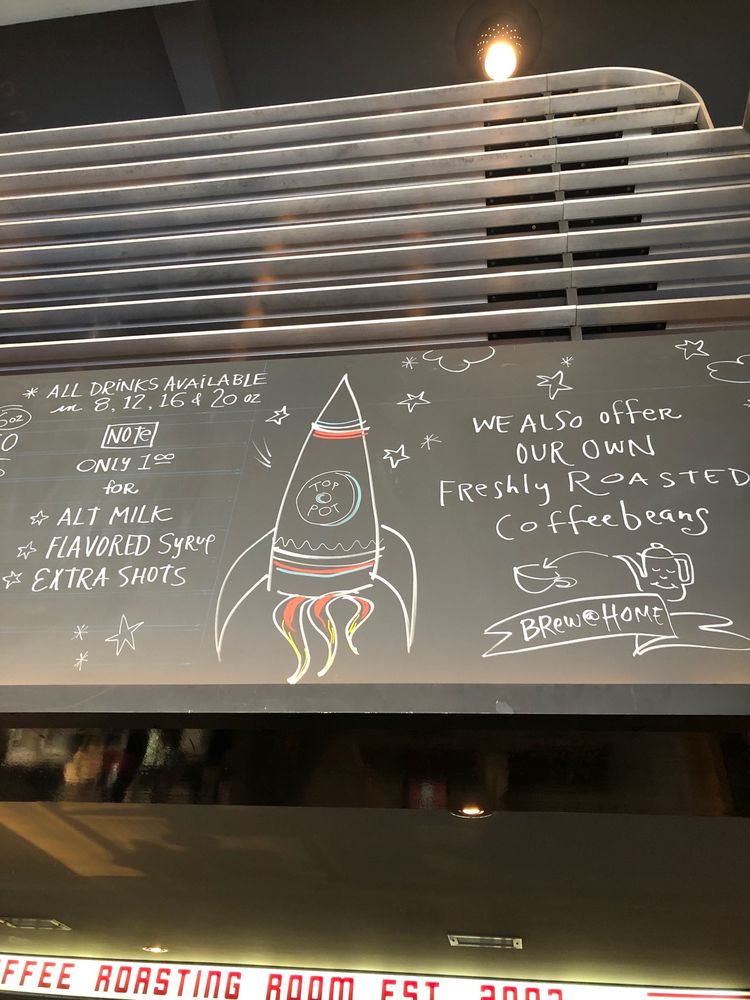 * ALL DRINKS AVAILABLE
in 8, 12, 16 & 20 oz
NOTE
ONLY 1.00
for
ALT MILK
FLAVORED SYRUP
EXTRA SHOTS
TOP
POT
WE ALSO OFFER
OUR OWN
FREshly ROASTED
Coffeebeans
BREW@HOME
FFEE ROASTING ROOM EST. 2002